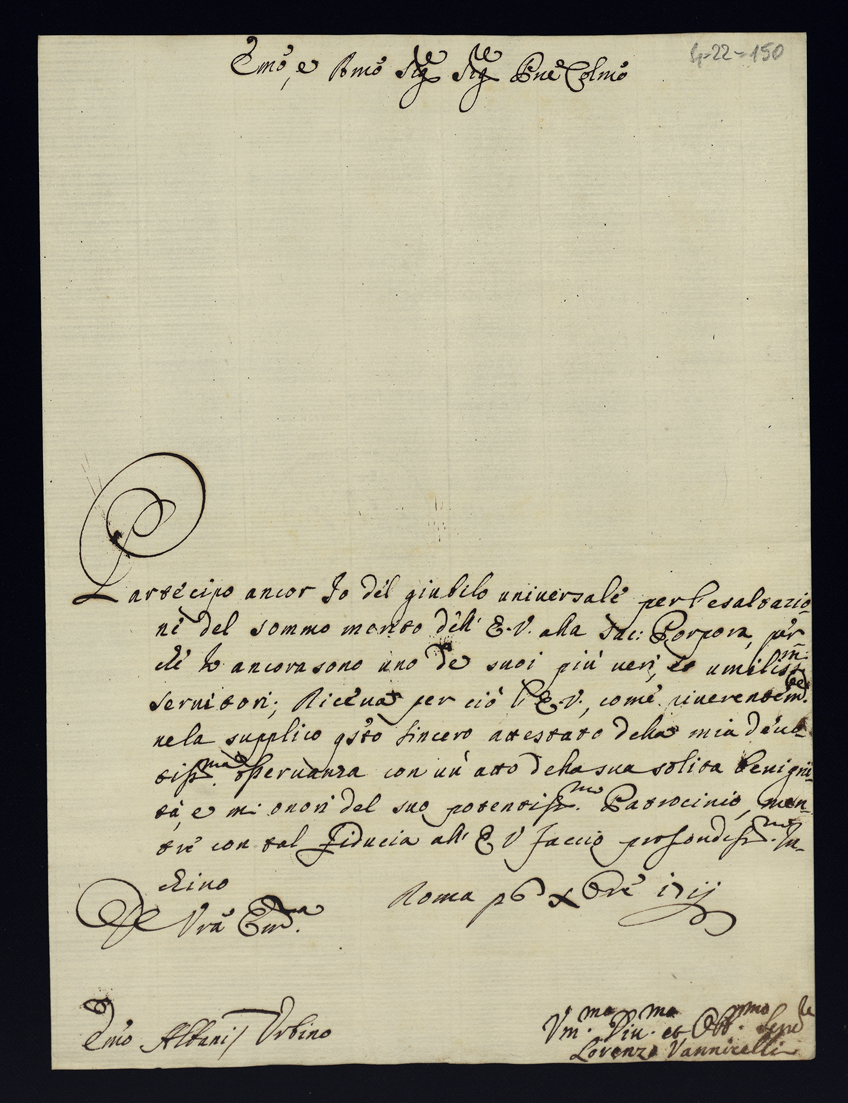 4-22-150
Emo, e Rmo Sigre Sigre Pne Colmo
Partecipo ancor Io del giubilo universale per l'esaltazio-
ne del sommo merito dell' E.V. alla Sac: Porpora, per
che Io ancora sono uno de suoi più veri, e umilissmi
servitori; Riceva per ciò l'E.V., come riverentemte.
nela supplico qsto sincero attestato della mia devo-
tissma. osservanza con un' atto della sua solita benigni-
tà, e mi onori del suo potentissmo. Patrocinio, men-
tre con tal Fiducia all' E V faccio profondissmo. In-
chino
Roma po Xbre 1711
De Vra Emza.
Emo Albani / Urbino
Vmma. Diuma. et Obbmo. Serre
Lorenzo Vannicelli